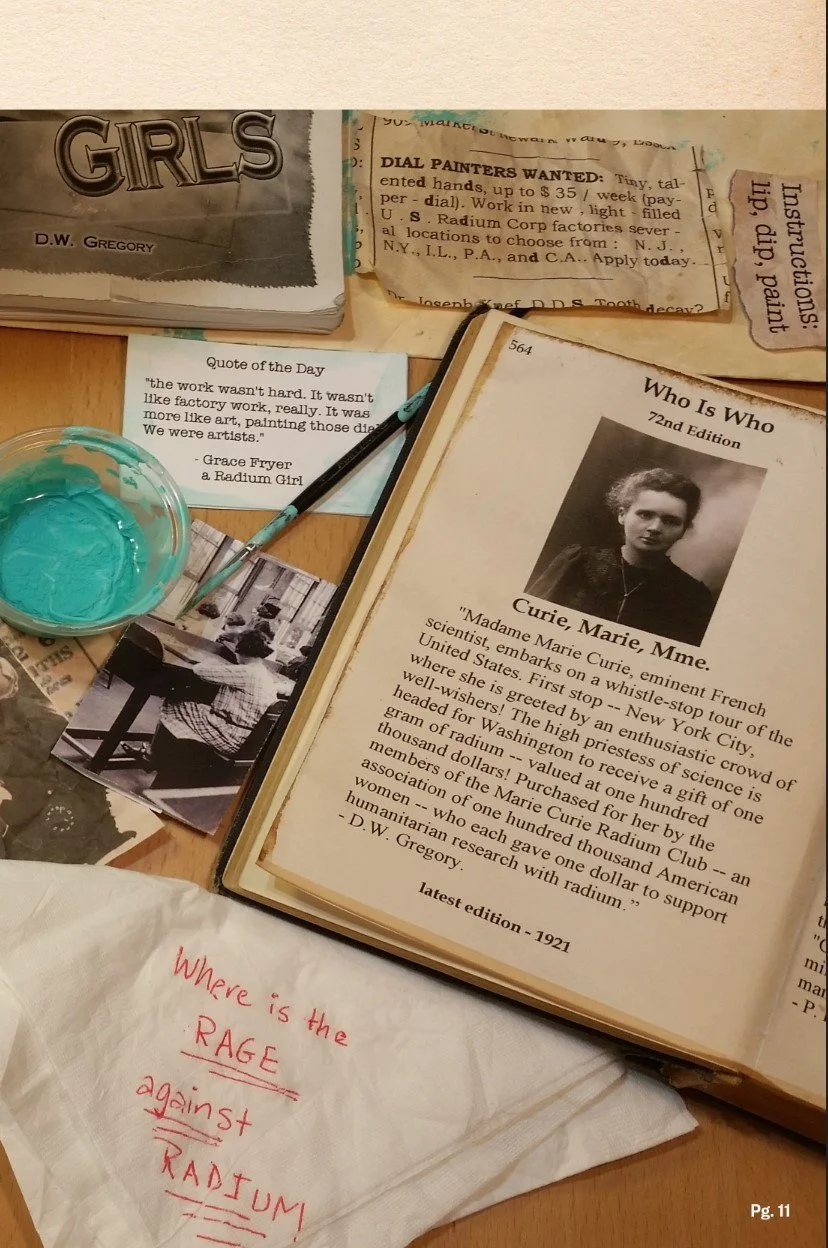 GIRLS
D.W. GREGORY
DIAL PAINTERS WANTED: Tiny, tal-
ented hands, up to $ 35 / week (pay-
per - dial). Work in new , light - filled
U . S . Radium Corp factories sever -
al locations to choose from : N. J. ,
N.Y., I.L., P.A., and C.A.. Apply today.
Dr. Joseph Knef, D.D.S. Tooth decay?
Instructions:
lip, dip, paint
Quote of the Day
"the work wasn't hard. It wasn't
like factory work, really. It was
more like art, painting those dia
We were artists."
- Grace Fryer
a Radium Girl
564
Who Is Who
72nd Edition
Curie, Marie, Mme.
"Madame Marie Curie, eminent French
scientist, embarks on a whistle-stop tour of the
United States. First stop -- New York City,
where she is greeted by an enthusiastic crowd of
well-wishers! The high priestess of science is
headed for Washington to receive a gift of one
gram of radium -- valued at one hundred
thousand dollars! Purchased for her by the
members of the Marie Curie Radium Club -- an
association of one hundred thousand American
women -- who each gave one dollar to support
humanitarian research with radium.”
- D.W. Gregory.
latest edition - 1921
Where is the
RAGE
against
RADIUM
Pg. 11